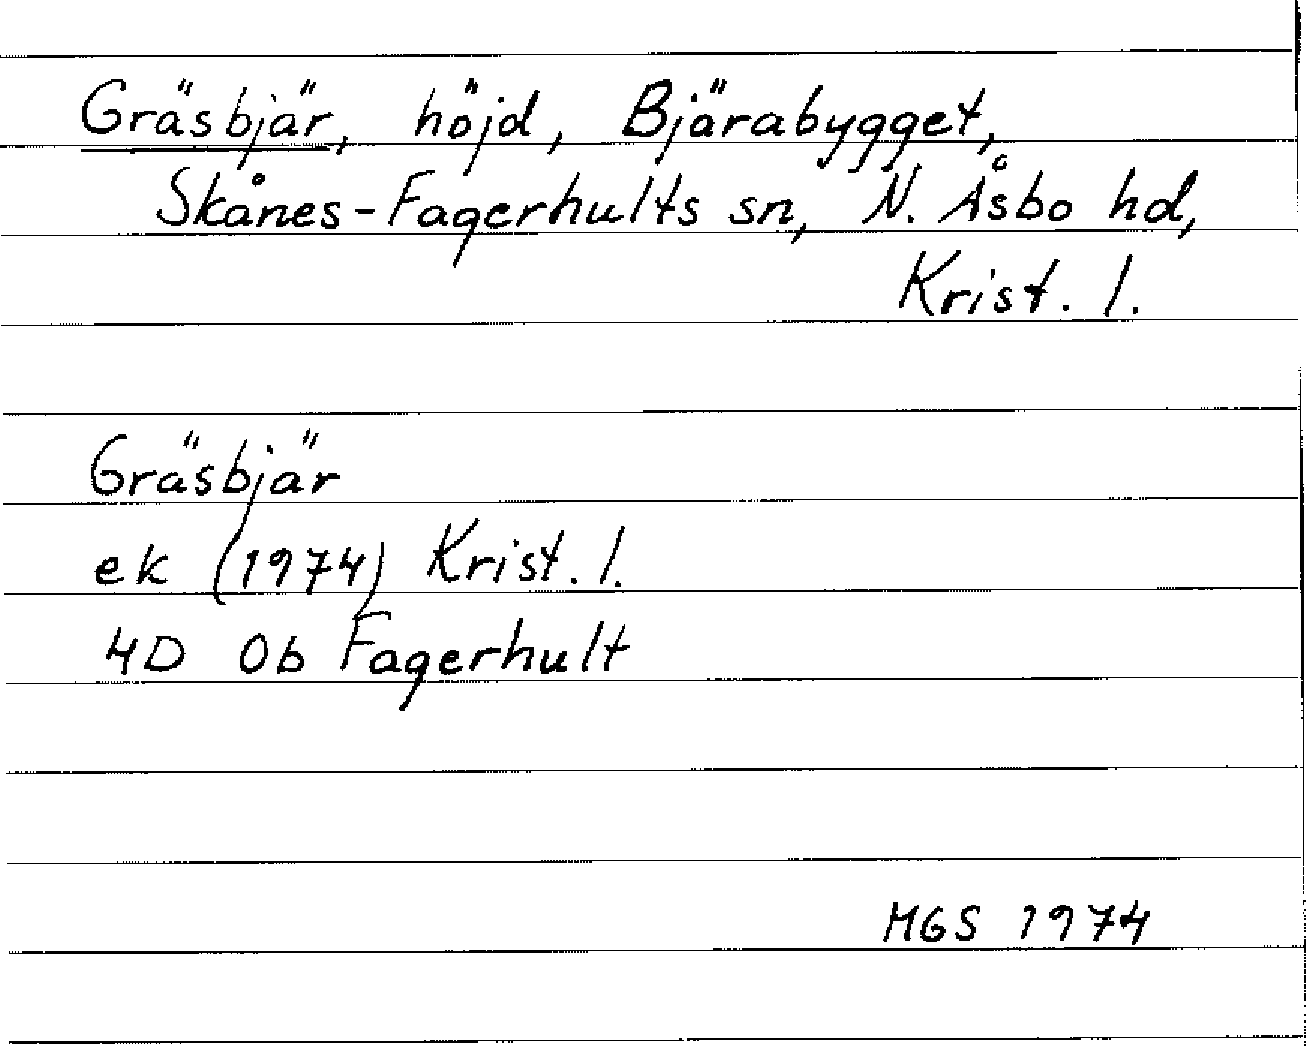 Gräsbjär, höjd, Bjärabygget,
Skånes-Fagerhults sn, N. Åsbo hd,
Krist. l.
Gräsbjär
ek (1974) Krist. l.
4D 0b Fagerhult
MGS 1974